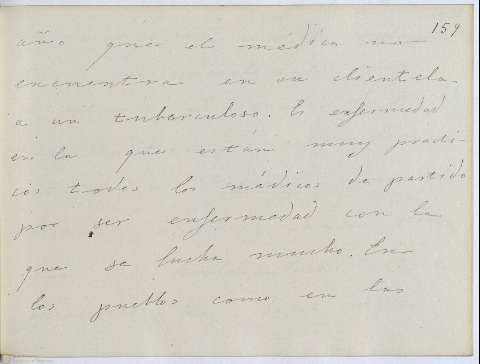 159
año que el médico no
encuentra en su clientela
a un tuberculoso. Es enfermedad
en la que están muy practi-
cos todos los médicos de partido
por ser enfermedad con la
que se lucha mucho. En
los pueblos como en las